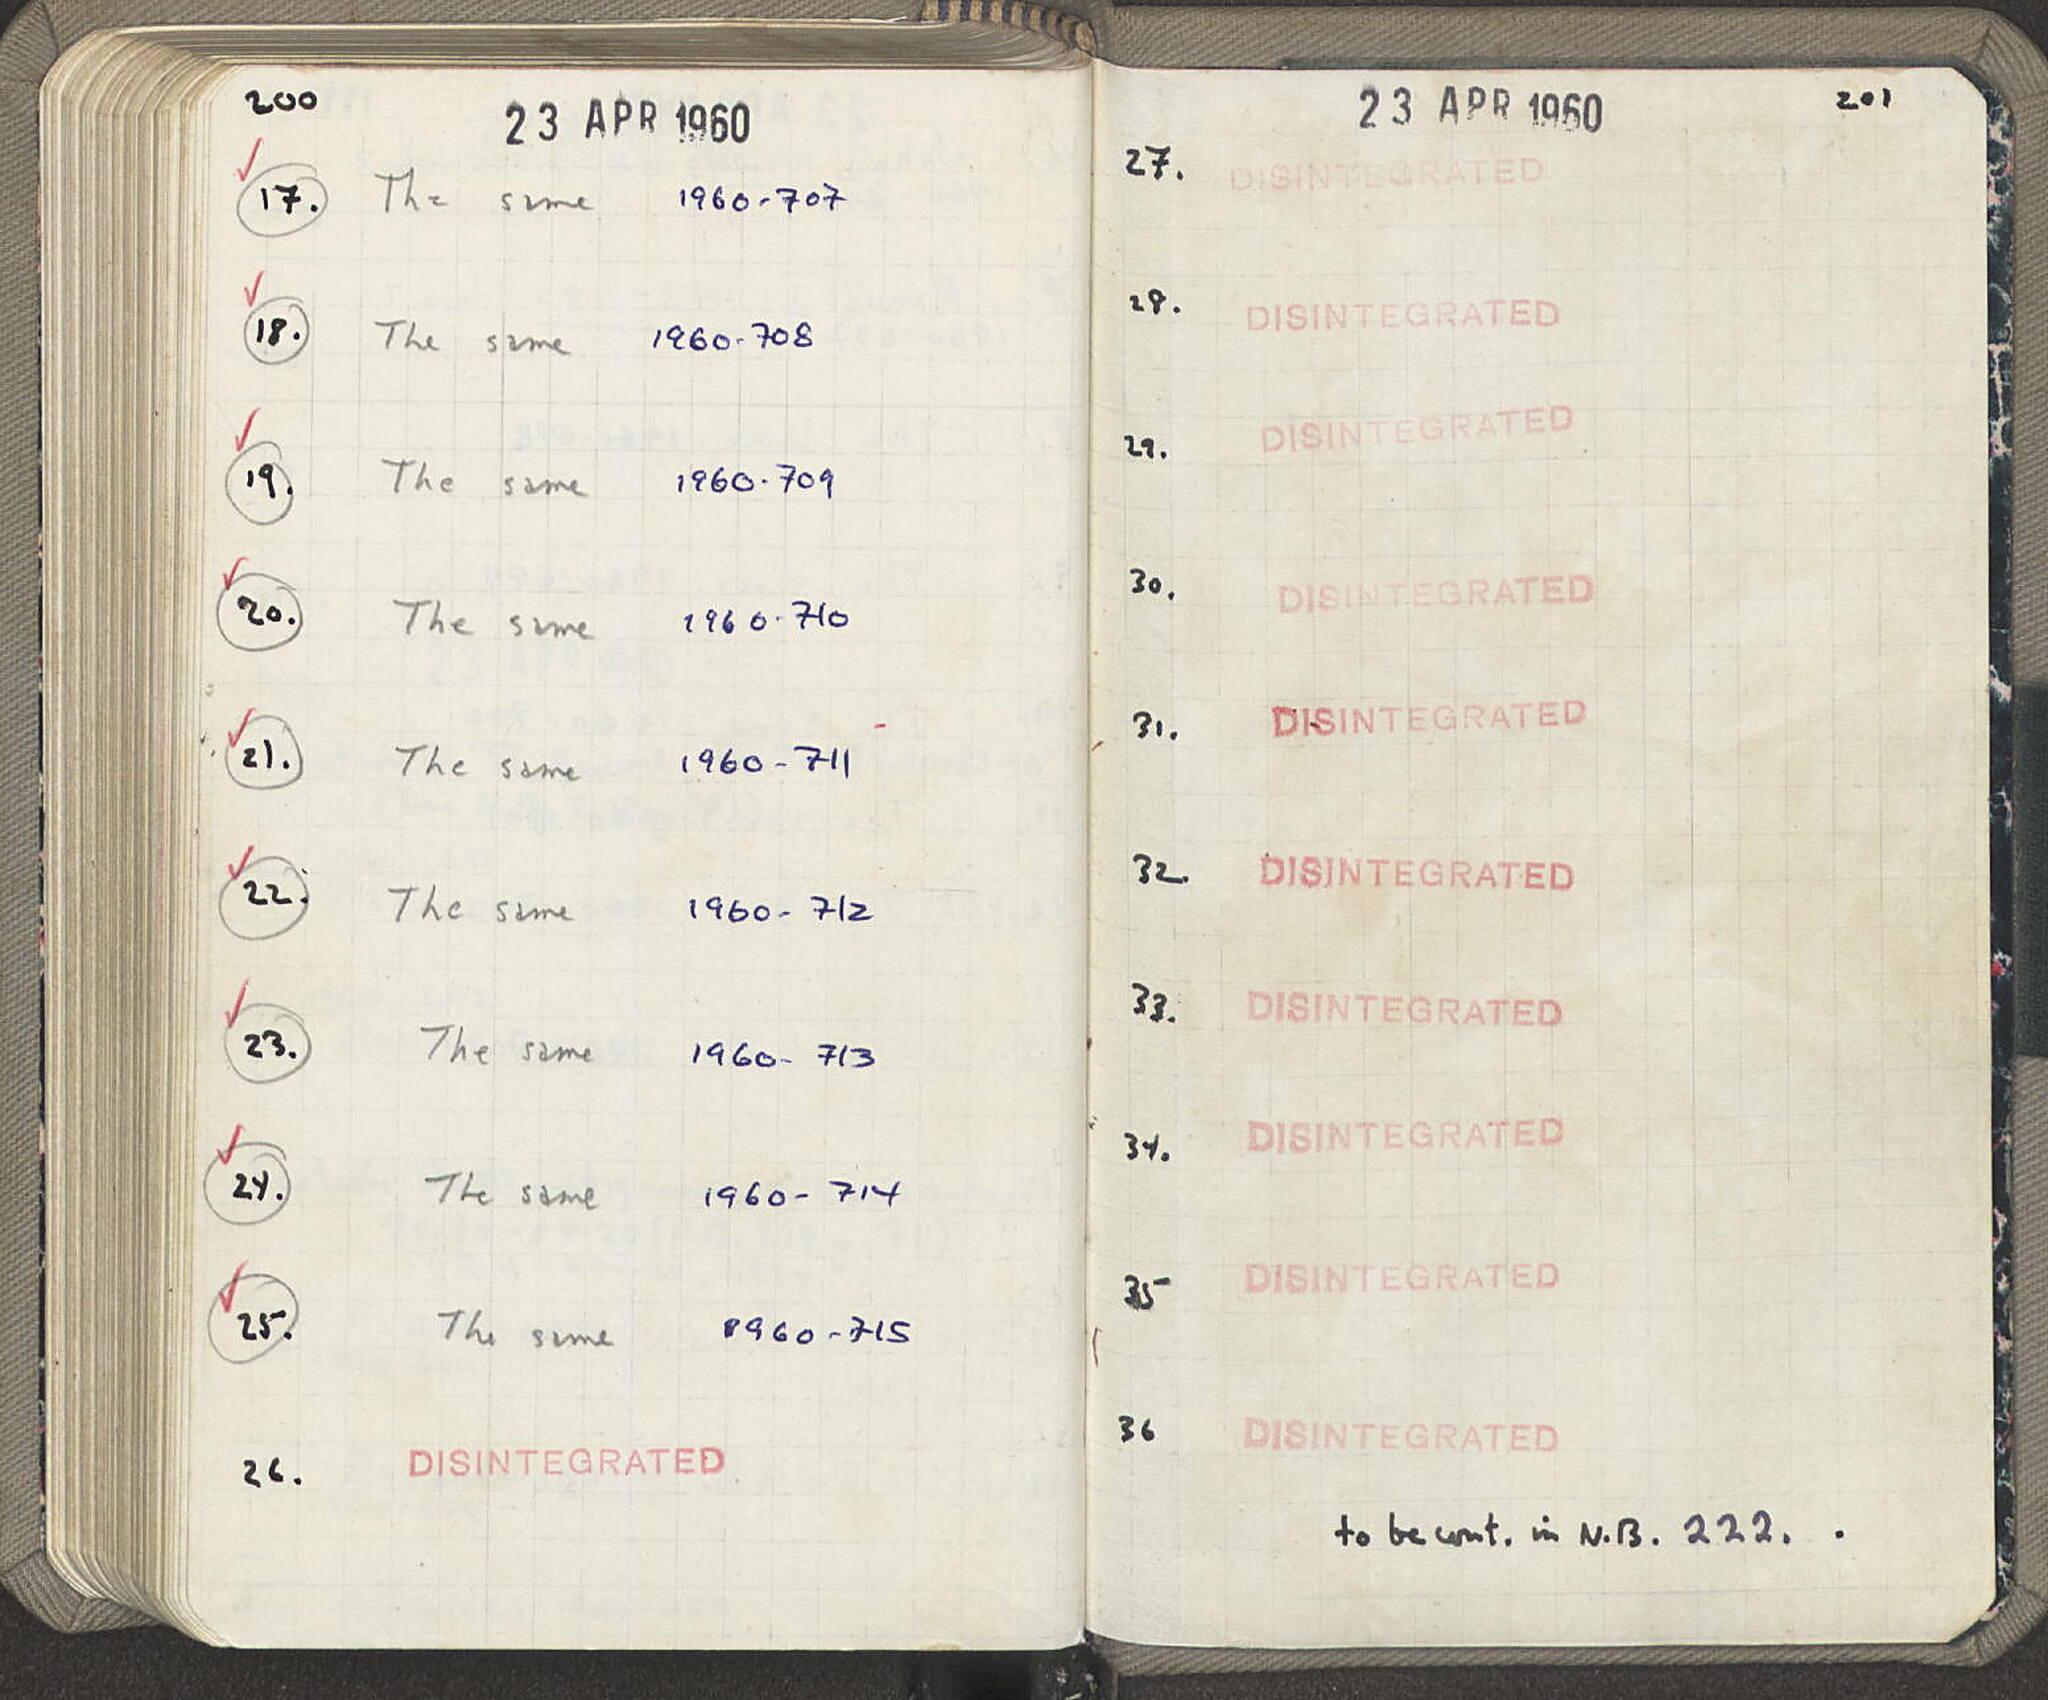 200
23 APR 1960
17. The same 1960-707
18. The same 1960-708
19. The same 1960-709
20. The same 1960-710
21. The same 1960-711
22. The same 1960-712
23. The same 1960-713
24. The same 1960-714
25. The same 1960-715
26. DISINTEGRATED
23 APR 1960
201
27. DISINTEGRATED
28. DISINTEGRATED
29. DISINTEGRATED
30. DISINTEGRATED
31. DISINTEGRATED
32. DISINTEGRATED
33. DISINTEGRATED
34. DISINTEGRATED
35 DISINTEGRATED
36 DISINTEGRATED
to be cont. in N.B. 222.